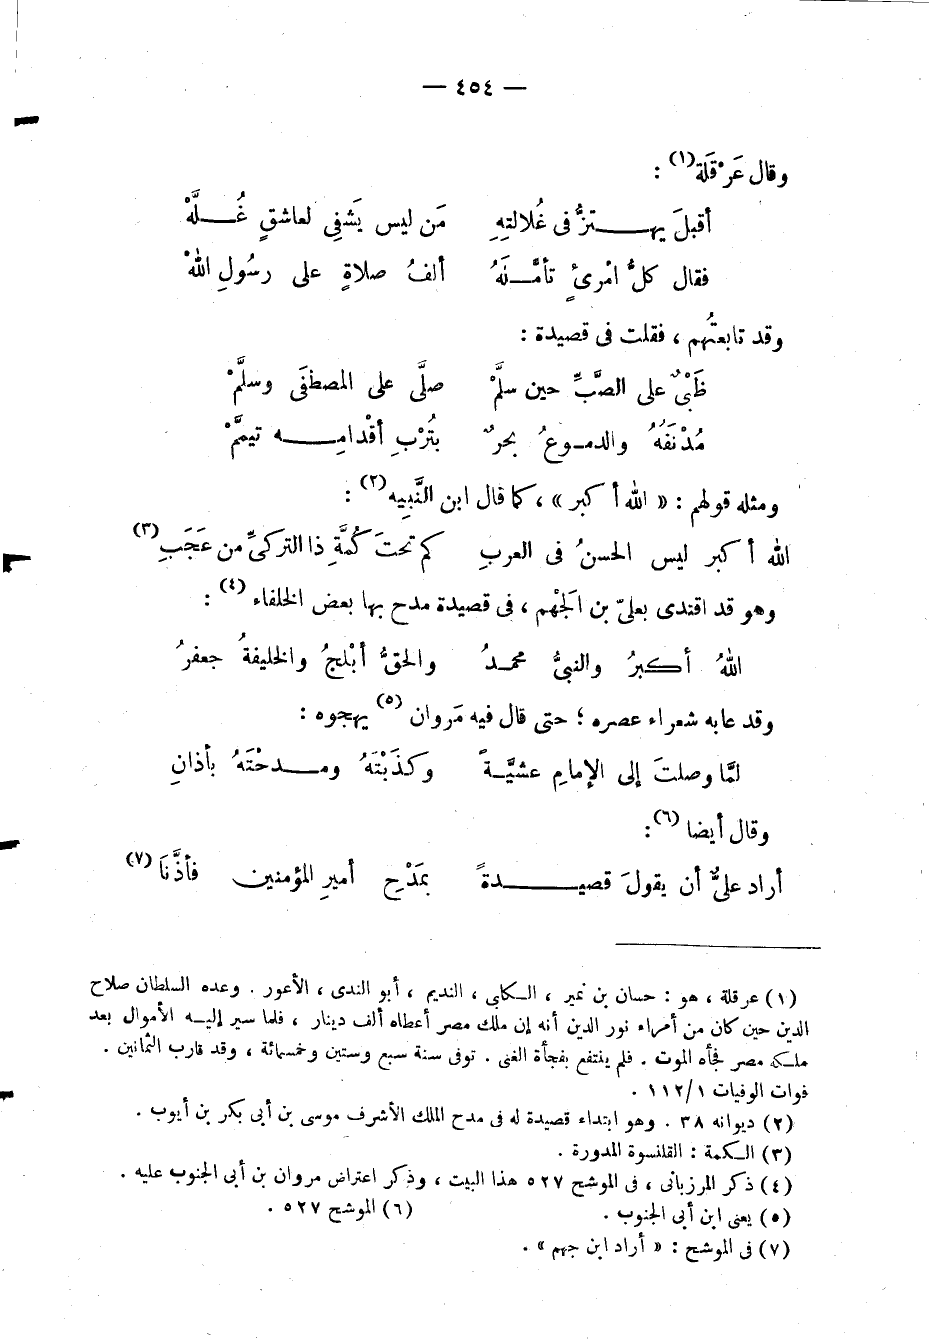 — ٤٥٤ —
وقال عَرْقَلة(١) :
أقبلَ يهـتزُّ فى غُلالتِهِ مَن ليس يَشفِى لعاشقٍ غُـلَّهْ
فقال كلُّ امْرئٍ تأمَّـلَهُ ألفُ صلاةٍ على رسُولِ اللهْ
وقد تابعتُهم ، فقلت فى قصيدة :
ظَبْىٌ على الصَّبِّ حين سلَّمْ صلَّى على المصطفَى وسلَّمْ
مُدْنَفَهُ والدمـوعُ بحرٌ بتُرْبِ أقْدامِـه تيمَّمْ
ومثله قولهم : « الله أكبر » ، كما قال ابن النَّبِيه(٢) :
الله أكبر ليس الحسنُ فى العربِ كم تحتَ كُمَّةِ ذا التركىِّ من عَجَبِ(٣)
وهو قد اقتدى بعلىّ بن الجَهْم ، فى قصيدة مدح بها بعض الخلفاء(٤) :
اللهُ أكبرُ والنبىُّ محمـدُ والحقُّ أبْلجُ والخليفةُ جعفرُ
وقد عابه شعراء عصره ؛ حتى قال فيه مَروان(٥) يهجوه :
لمَّا وصلتَ إلى الإمامِ عشيَّـةً وكذَبْتَهُ ومـدحْتَهُ بأذانِ
وقال أيضا(٦) :
أراد علىٌّ أن يقولَ قصيـدةً بمَدْحِ أميرِ المؤمنين فأذَّنَا(٧)
(١) عرقلة ، هو : حسان بن نمير ، الـكلبى ، النديم ، أبو الندى ، الأعور . وعده السلطان صلاح
الدين حين كان من أمراء نور الدين أنه إن ملك مصر أعطاه ألف دينار ، فلما سير إليـه الأموال بعد
ملـكه مصر فجأه الموت . فلم ينتفع بفجأة الغنى . توفى سنة سبع وستين وخمسمائة ، وقد قارب الثمانين .
فوات الوفيات ١/١١٢ .
(٢) ديوانه ٣٨ . وهو ابتداء قصيدة له فى مدح الملك الأشرف موسى بن أبى بكر بن أيوب .
(٣) الـكمة : القلنسوة المدورة .
(٤) ذكر المرزبانى ، فى الموشح ٥٢٧ هذا البيت ، وذكر اعتراض مروان بن أبى الجنوب عليه .
(٥) يعنى ابن أبى الجنوب . (٦) الموشح ٥٢٧ .
(٧) فى الموشح : « أراد ابن جهم » .